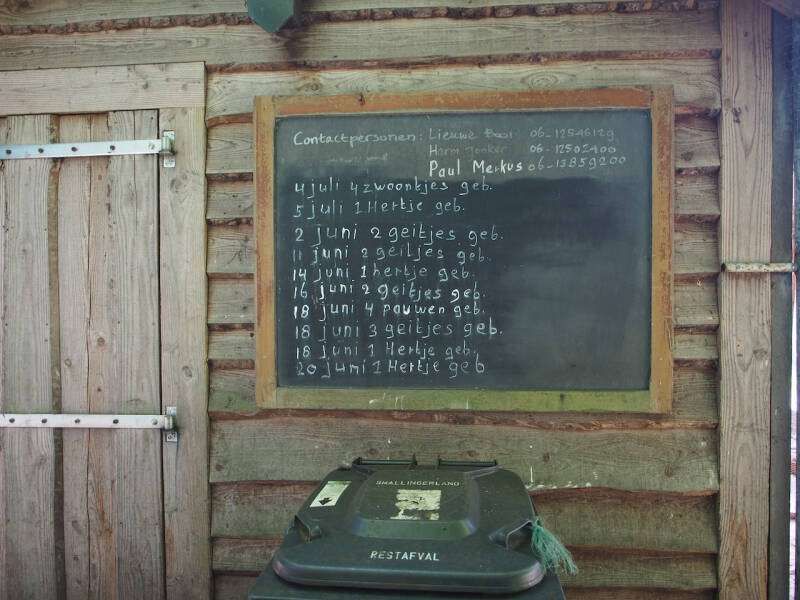 Contactpersonen: Lieuwe Booi 06-12546129
Harm Jonker 06-12502400
Paul Merkus 06-13859200
4 juli 4 zwoontjes geb.
5 juli 1 Hertje geb.
2 juni 2 geitjes geb.
11 juni 2 geitjes geb.
14 juni 1 hertje geb.
16 juni 2 geitjes geb.
18 juni 4 pauwen geb.
18 juni 3 geitjes geb.
18 juni 1 Hertje geb.
20 juni 1 Hertje geb
SMALLINGERLAND
RESTAFVAL